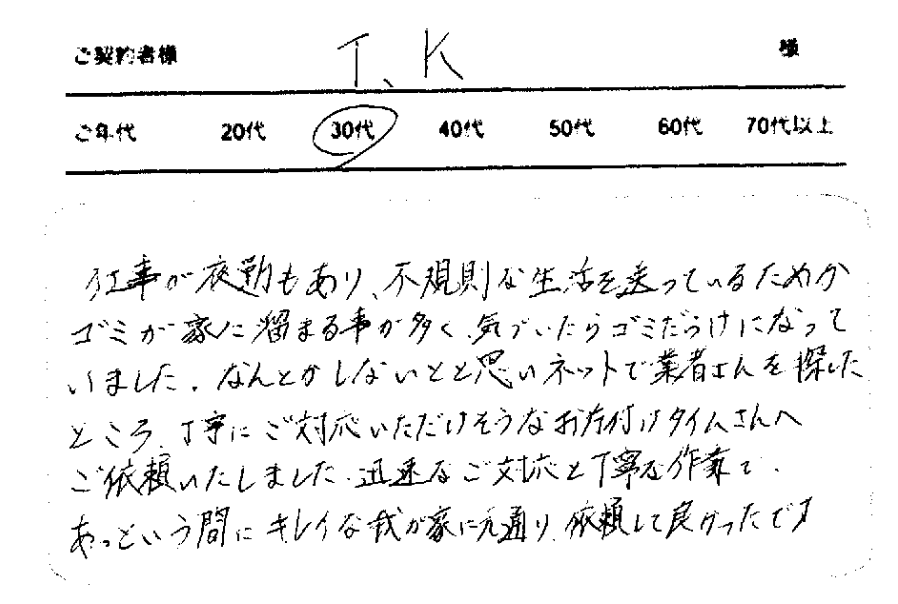 ご契約者様 T、K 様
ご年代 20代 30代 40代 50代 60代 70代以上
仕事が夜勤もあり、不規則な生活を送っているためか
ゴミが家に溜まる事が多く、気づいたらゴミだらけになって
いました。なんとかしないとと思いネットで業者さんを探した
ところ、丁寧にご対応いただけそうなお片付けタイムさんへ
ご依頼いたしました。迅速なご対応と丁寧な作業で、
あっという間にキレイな我が家に元通り、依頼して良かったです